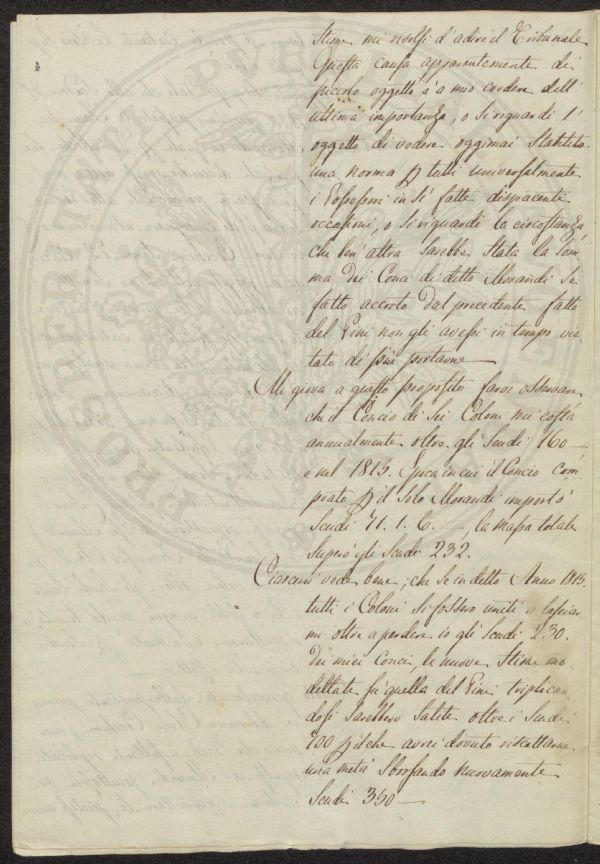 Stime mi risolsi d'adire il Tribunale
Questa causa apparentemente di
piccolo oggetto è a mio credere dell'
ultima importanza, o si riguardi l'
oggetto di vedere oggimai stabilita
una norma p tutti universalmente
i Possessori in sì fatte dispiacenti
occasioni, o si riguardi la circostanza,
che ben altra sarebbe stata la som
ma dei Conci di detto Morandi se
fatto accorto dal precedente fatto
del Pini non gli avessi in tempo vie
tato di più portarne
Mi giova a questo proposito farvi osservare
che il Concio di sei Coloni mi costa
annualmente oltre gli Scudi 160 —
e nel 1815. Epoca in cui il Concio com
prato p il solo Morandi importò
Scudi 71. 1. 6. —, la massa totale
superò gli Scudi 232.
Ciascun vede bene, che se in detto Anno 1815.
tutti i Coloni si fossero uniti a lasciar
mi oltre a perdere io gli Scudi 230.
dei miei Conci, le nuove Stime mo
dellate su quella del Pini triplican
dosi sarebbero salite oltre i Scudi
700 p il che avrei dovuto riscattarne
una metà sborsando nuovamente
Scudi 350 —